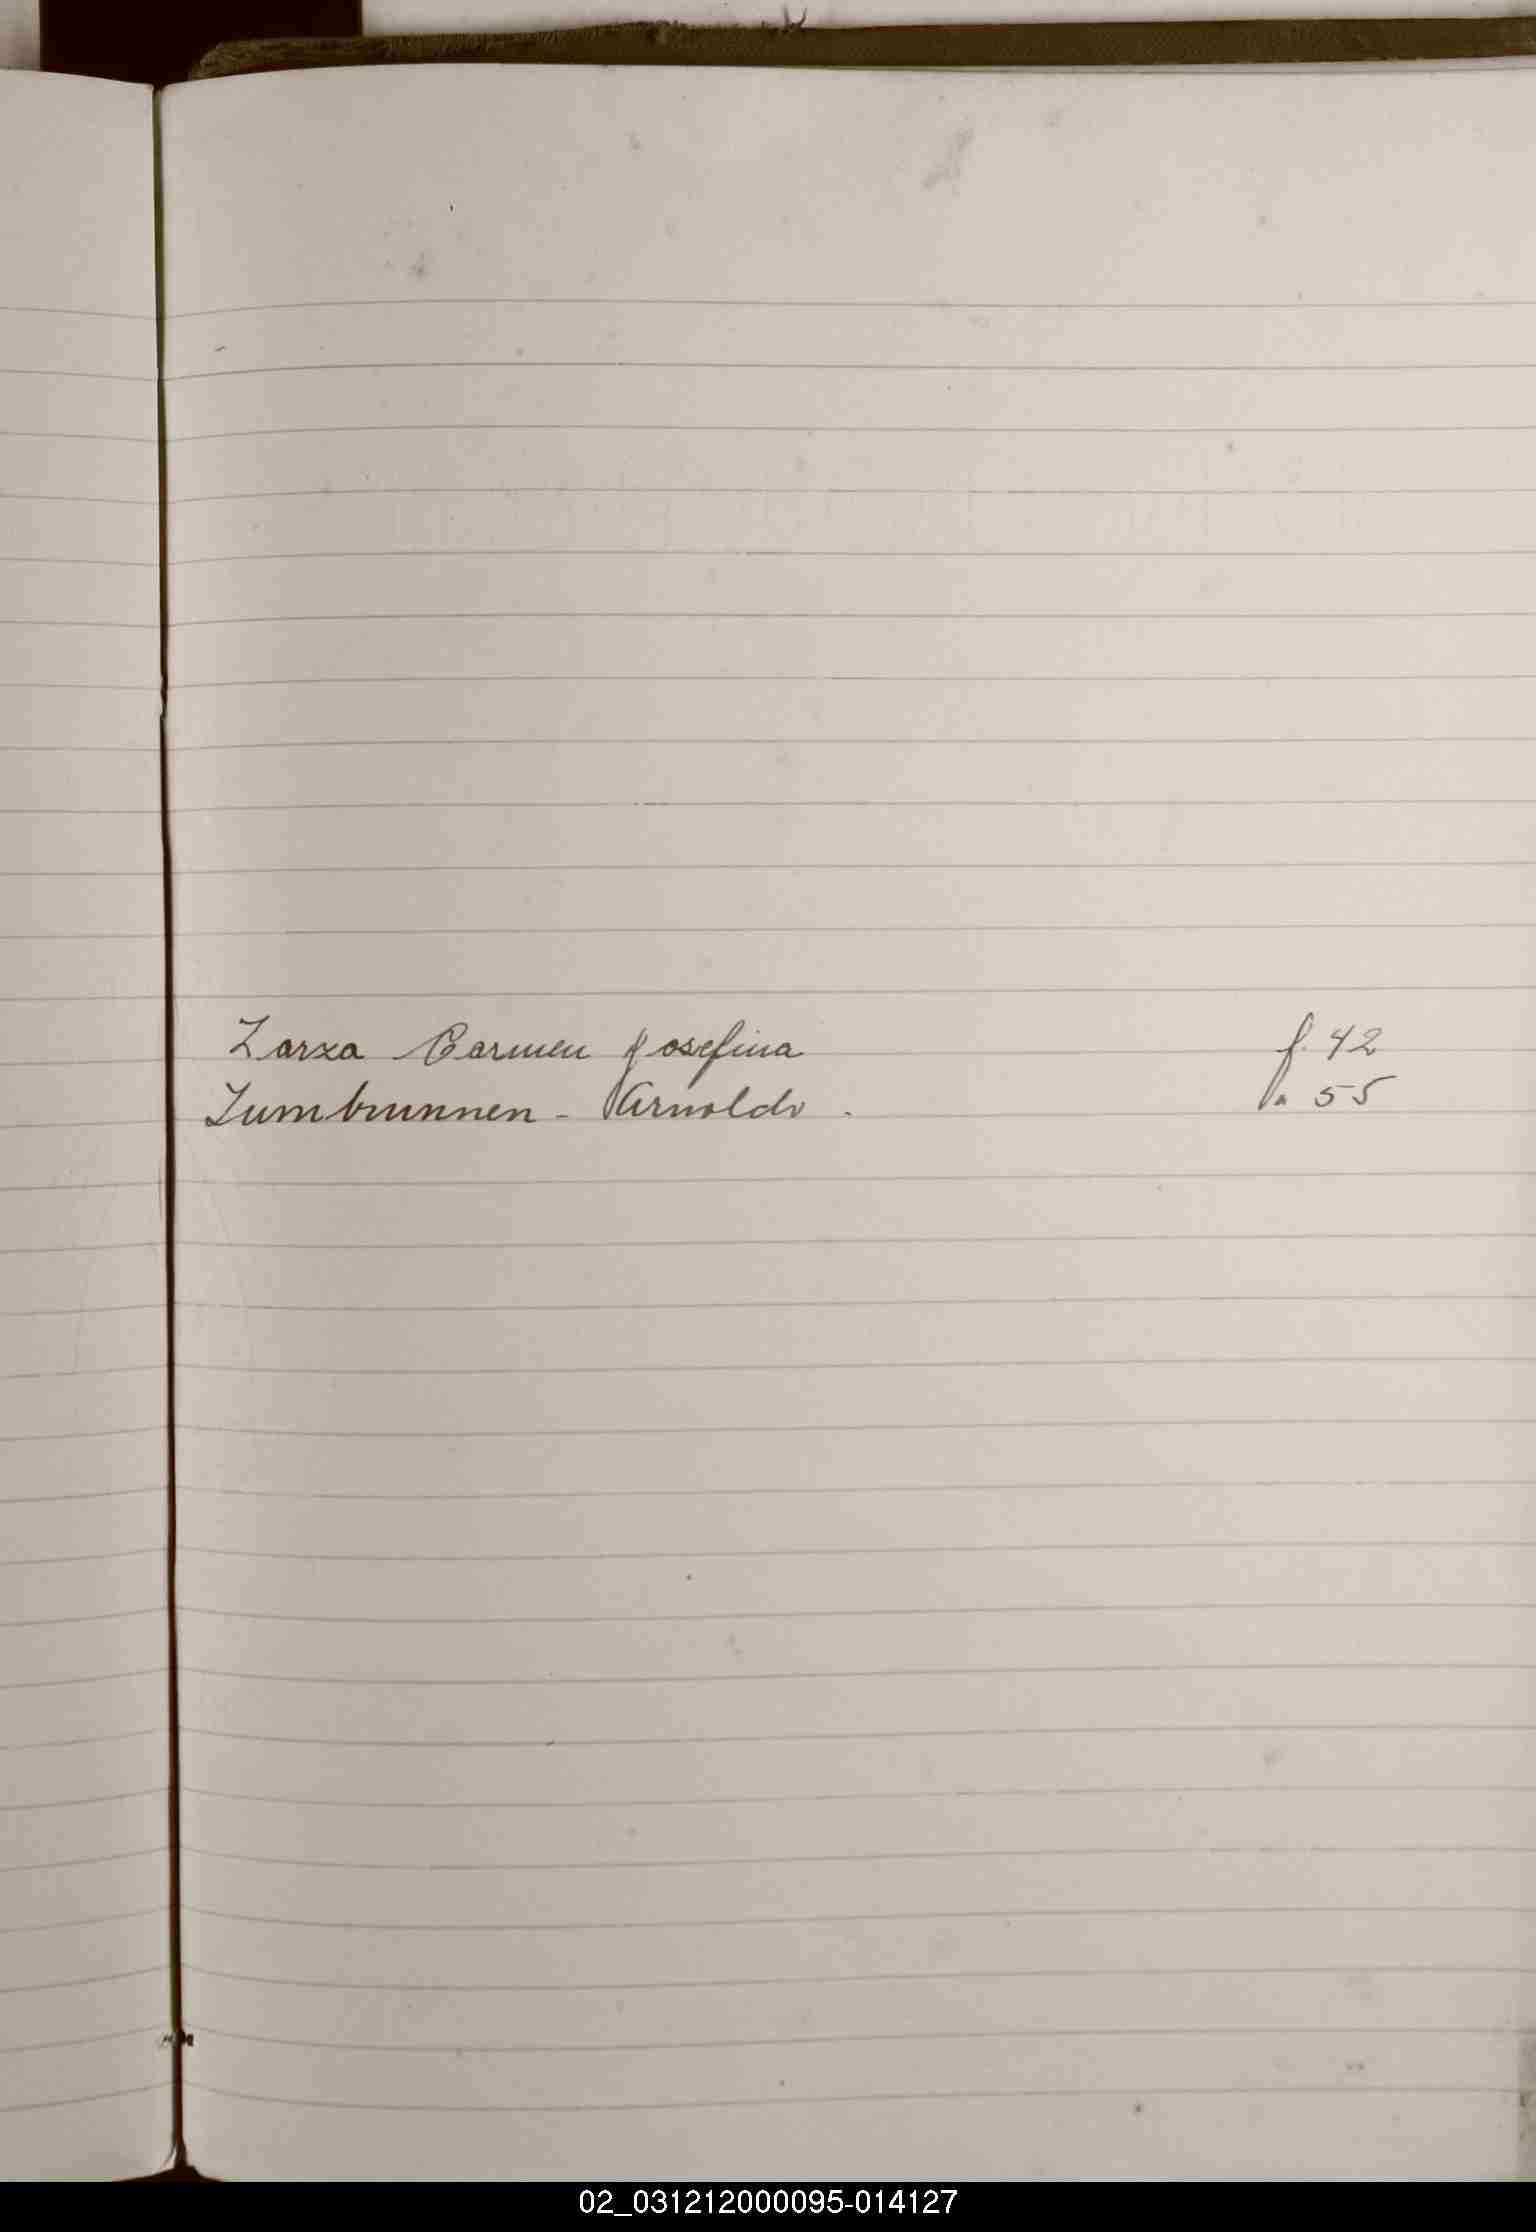 Zarza Carmen Josefina f. 42
Zumbrunnen - Arnoldo . " 55
02_031212000095-014127